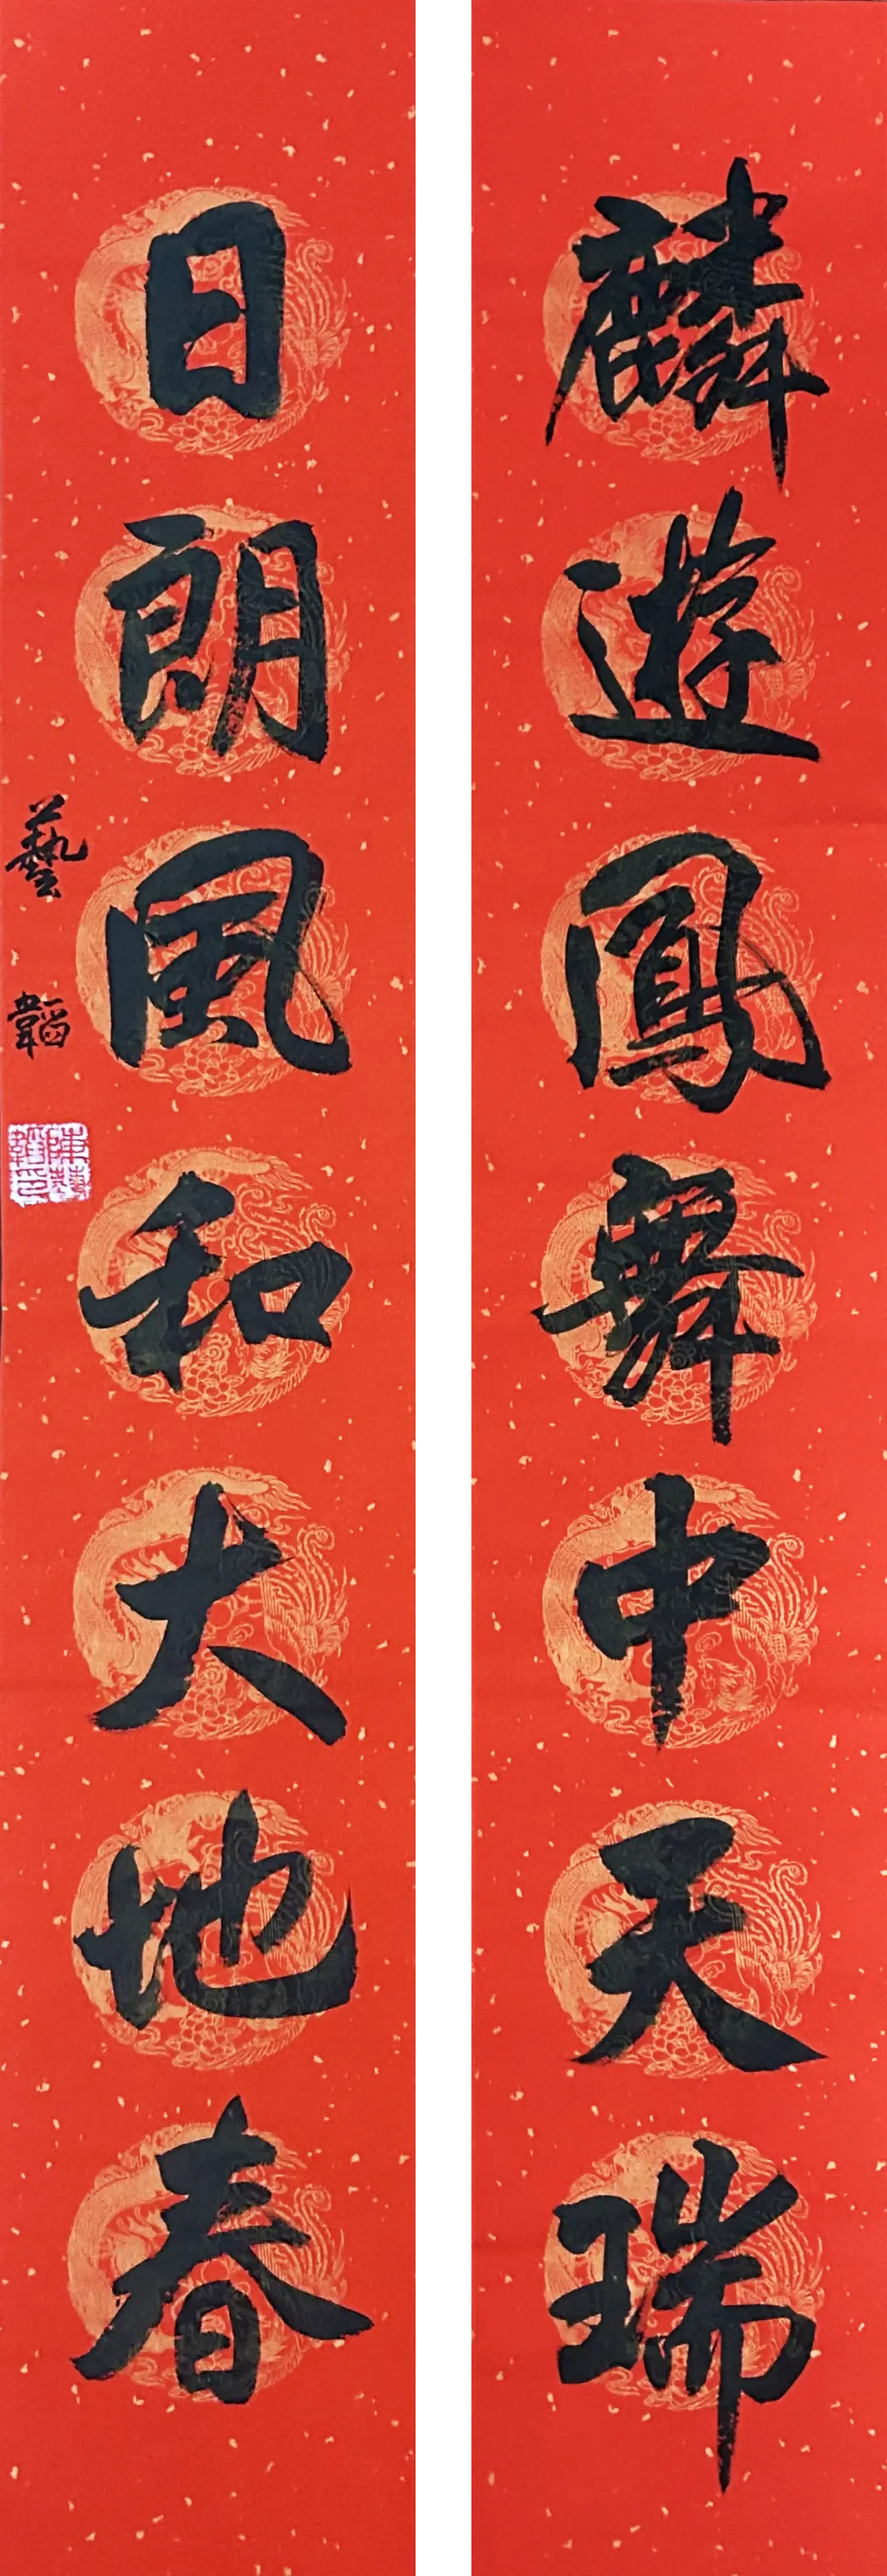 麟遊鳳舞中天瑞
日朗風和大地春
藝韜